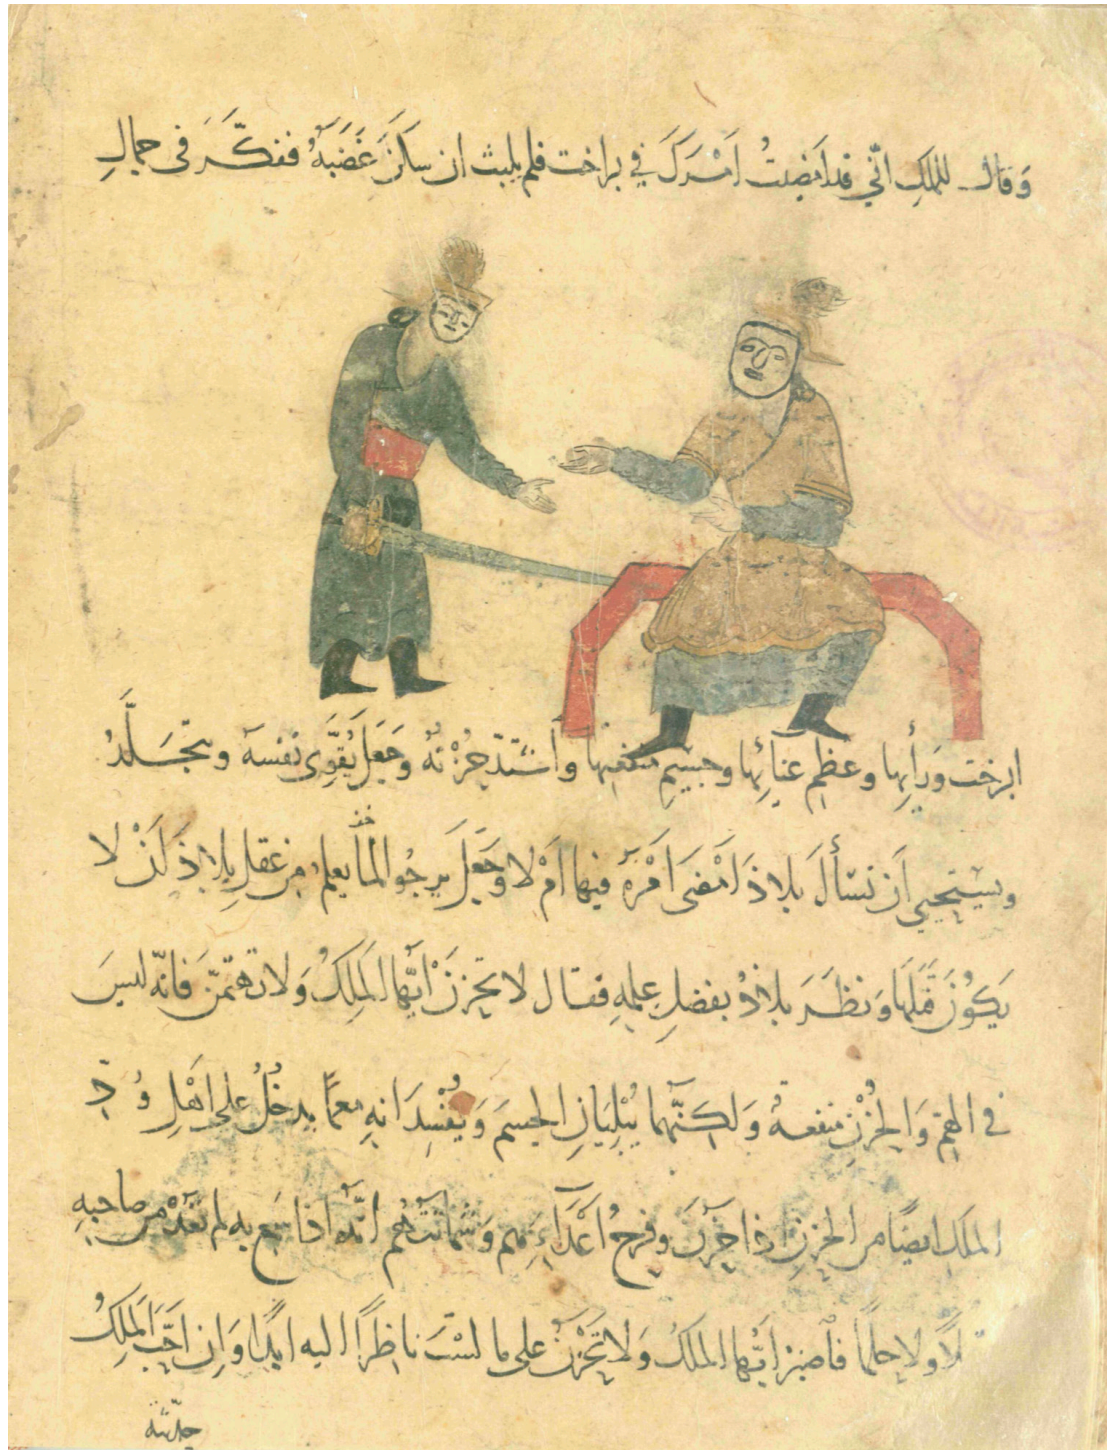 وَقال للملكِ انّي قد امضيتُ اَمْرَكَ في براخت فلم يلبث ان سَكَنَ غَضَبَهُ ففكَّرَ في جمالِ
ابرخت وَرأيها وعظم عَنآئِها وجسيم منفعتها واَشتدّ حُزْنَهُ وَجَعَلَ يُقَوِّى نفسه ويتجَلَّدُ
ويستحيي اَن نسألَ بلاذ اَمْضَى اَمْرَهُ فيها اَمْ لا وَجَعَلَ يرجُوا لما يعلم من عقلِ بلاذ اَنْ لا
يَكوُنَ قَتَلَهَا وَنظَرَ بلاذُ بفضلِ علمِهِ فقال لا تحزنَنْ اَيُّها المَلِكُ وَلا تهتمَّنّ فانّه ليسَ
في الهمّ وَالحُزْنِ منفعةٌ وَلكنَّهما يُبْلِيَانِ الجسمَ وَيُفْسِدَانِهِ معمَّا يدخُلُ على اَهْلِ وُدِّ
الملكِ ايضًا من الحزنِ اذا حَزِنَ وفرحُ اَعْدَآءِهِم وَشَماتَتُهُم انّه اذا سَمِعَ به لم نعدّ من صاحبِهِ
ولا حلمًا فاَصبِرْ اَيُّها الملكُ وَلا تَحْزَنْ على ما لسْتَ ناظِرًا اليه ابدًا وَاِن اَحَبَّ المَلِكُ
حدّثته